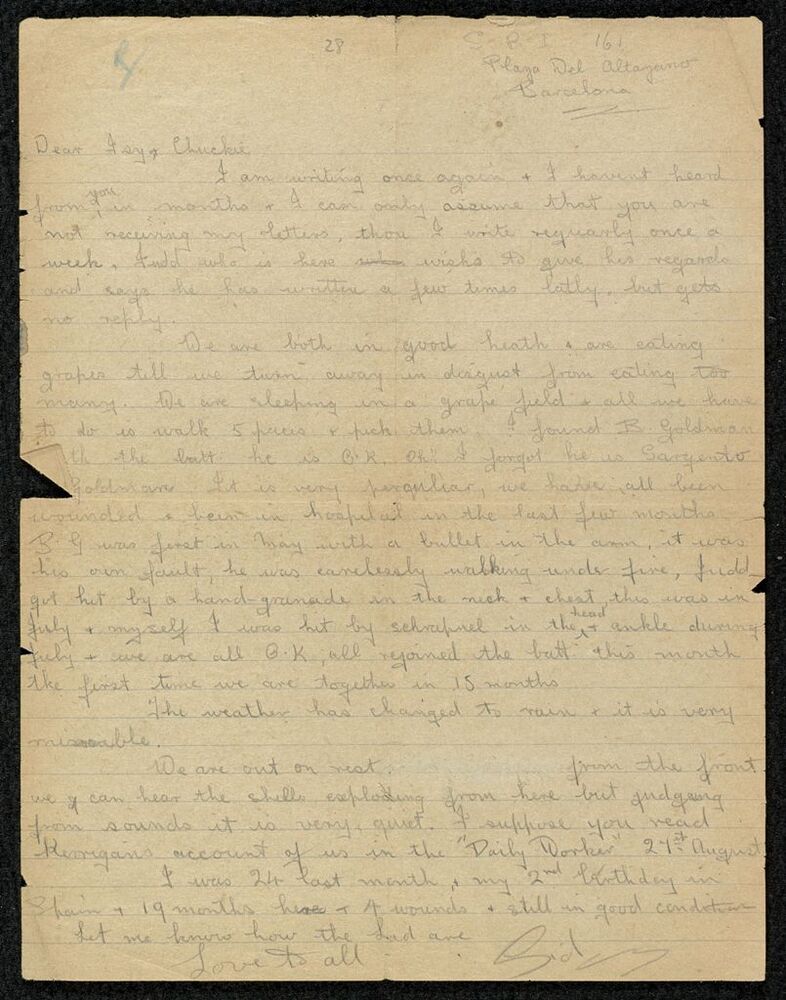 28
S. R. I. 161
Plaza Del Altozano
Barcelona
Dear Isy & Chuckie
I am writing once again + I havent heard
from you in months + I can only assume that you are
not receiving my letters, thou I write reguarly once a
week. Judd who is here wishs to give his regards
and says he has written a few times latly, but gets
no reply.
We are both in good heath & are eating
grapes till we turn away in disgust from eating too
many. We are sleeping in a grape field + all we have
to do is walk 5 paces + pick them. I found B. Goldman
th the batt he is O.K. Oh! I forgot he is Sargento
Goldman. It is very perquliar, we have all been
wounded & been in hospital in the last few months
B. G was first in May with a bullet in the arm, it was
his own fault, he was carelessly walking under fire, Judd
got hit by a hand-granade in the neck + chest this was in
July + myself I was hit by schrapnel in the head + ankle during
July + we are all O.K, all rejoined the batt this month
the first time we are together in 15 months
The weather has changed to rain + it is very
miserable.
We are out on rest. from the front
we can hear the shells exploding from here but judgeing
from sounds it is very, quiet. I suppose you read
Kerrigans account of us in the "Daily Worker" 27st August
I was 24 last month, my 2nd birthday in
Spain + 19 months here + 4 wounds + still in good condition
Let me know how the Lad are
Love to all
Sid